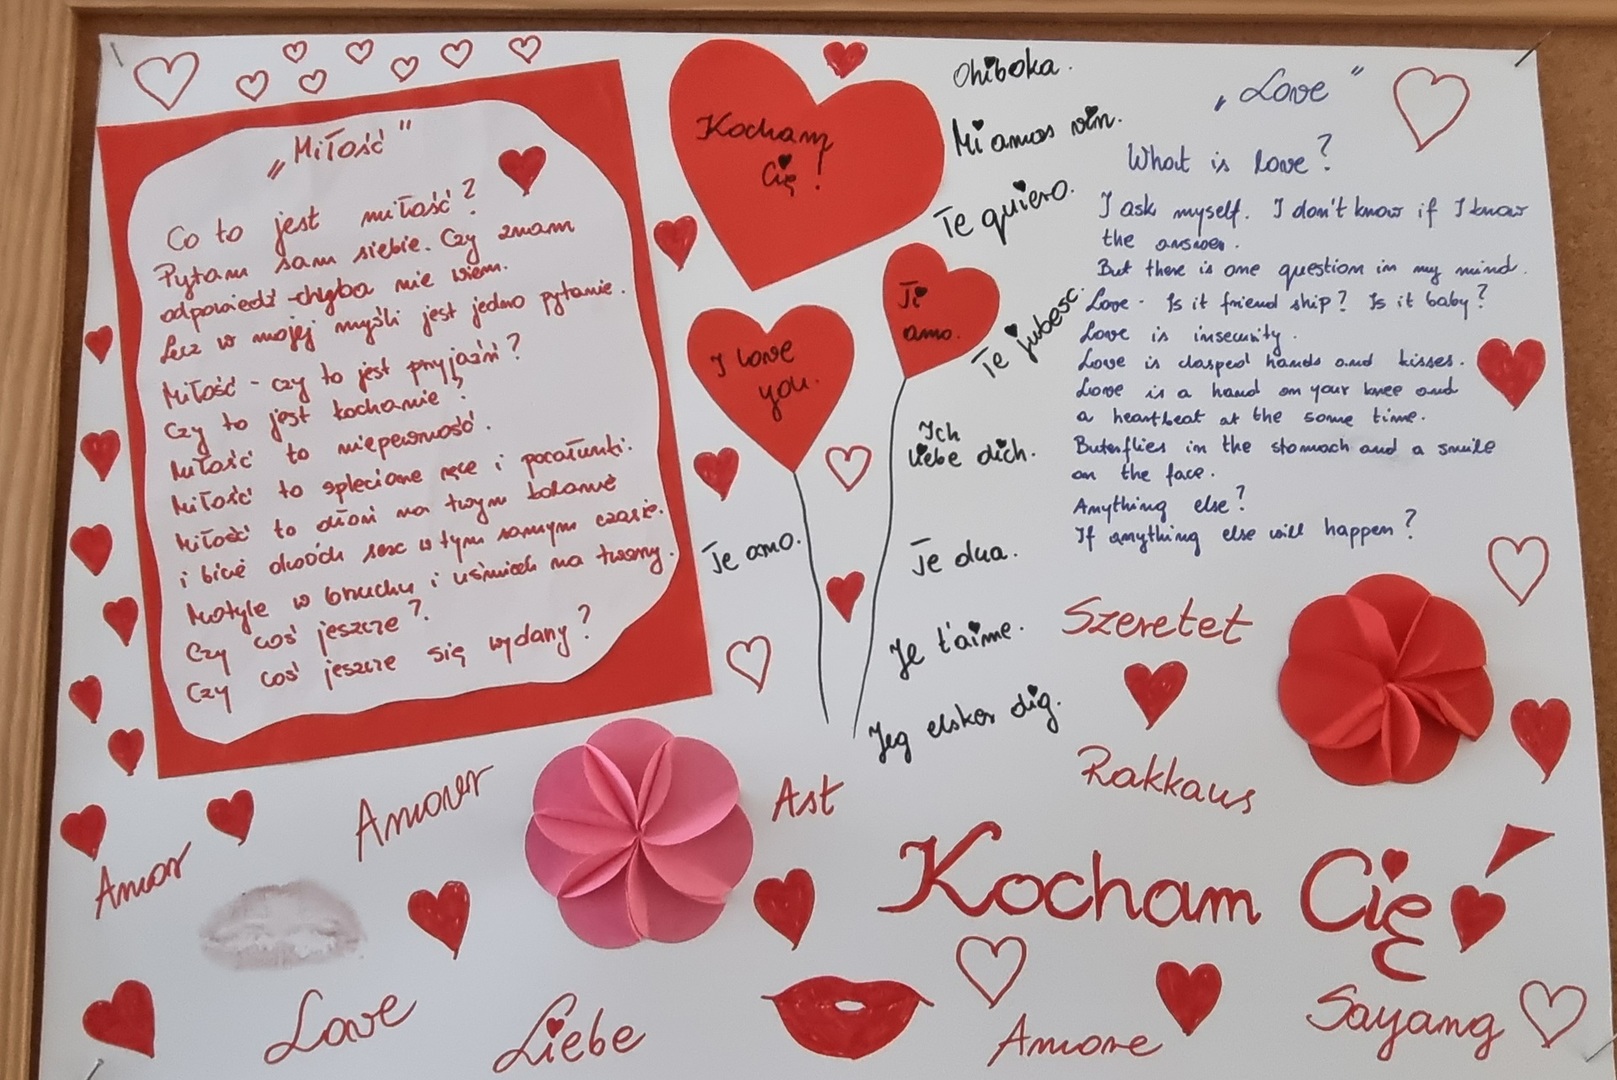 „Miłość"
Co to jest miłość?
Pytam sam siebie. Czy znam
odpowiedź - chyba nie wiem.
Lecz w mojej myśli jest jedno pytanie.
Miłość - czy to jest przyjaźń?
Czy to jest kochanie?
Miłość to niepewność.
Miłość to splecione ręce i pocałunki.
Miłość to dłoń na twym kolanie
i bicie dwóch serc w tym samym czasie.
Motyle w brzuchu i uśmiech na twarzy.
Czy coś jeszcze?
Czy coś jeszcze się wydarzy?
Kocham
Cię!
I love
you.
Ti
amo.
Ohiboka.
Mi amas vin.
Te quiero.
Te iubesc.
Ich
liebe dich.
Te amo.
Te dua.
Je t'aime.
Jeg elsker dig.
„Love"
What is love?
I ask myself. I don't know if I know
the answer.
But there is one question in my mind.
Love - Is it friend ship? Is it baby?
Love is insecurity.
Love is clasped hands and kisses.
Love is a hand on your knee and
a heartbeat at the same time.
Buterflies in the stomach and a smile
on the face.
Anything else?
If anything else will happen?
Szeretet
Rakkaus
Amour
Ast
Amor
Kocham Cię
Love
Liebe
Amore
Sayang